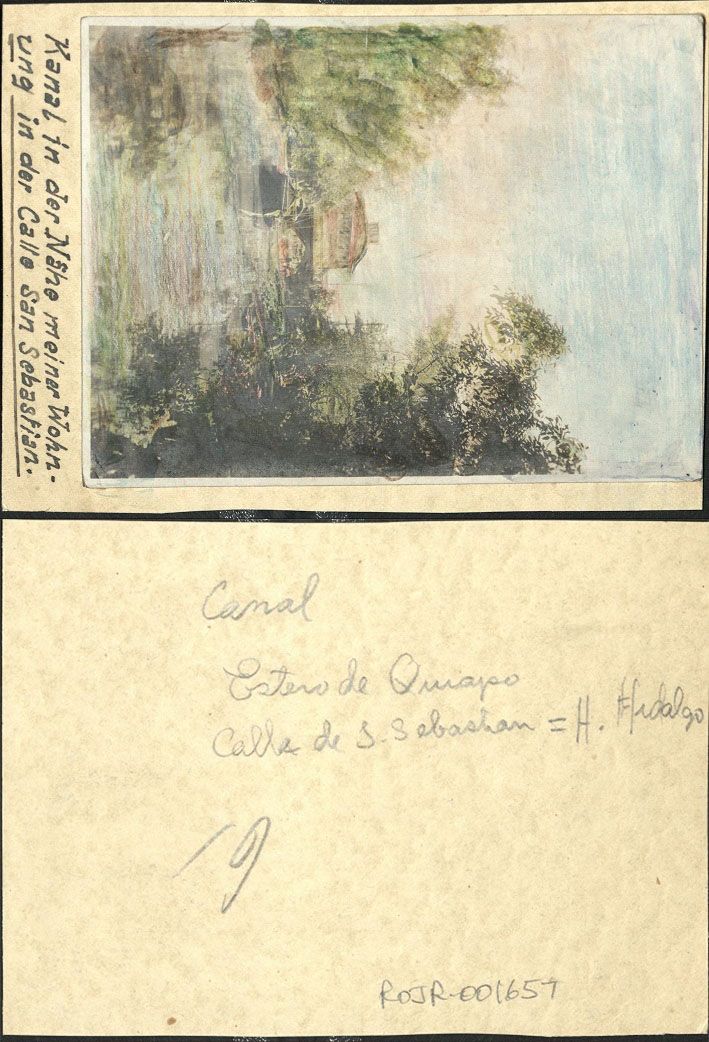 Kanal in der Nähe meiner Wohn-
ung in der Calle San Sebastian.
Canal
Estero de Quiapo
Calle de S. Sebastian = H. Hidalgo
19
ROJR-001657